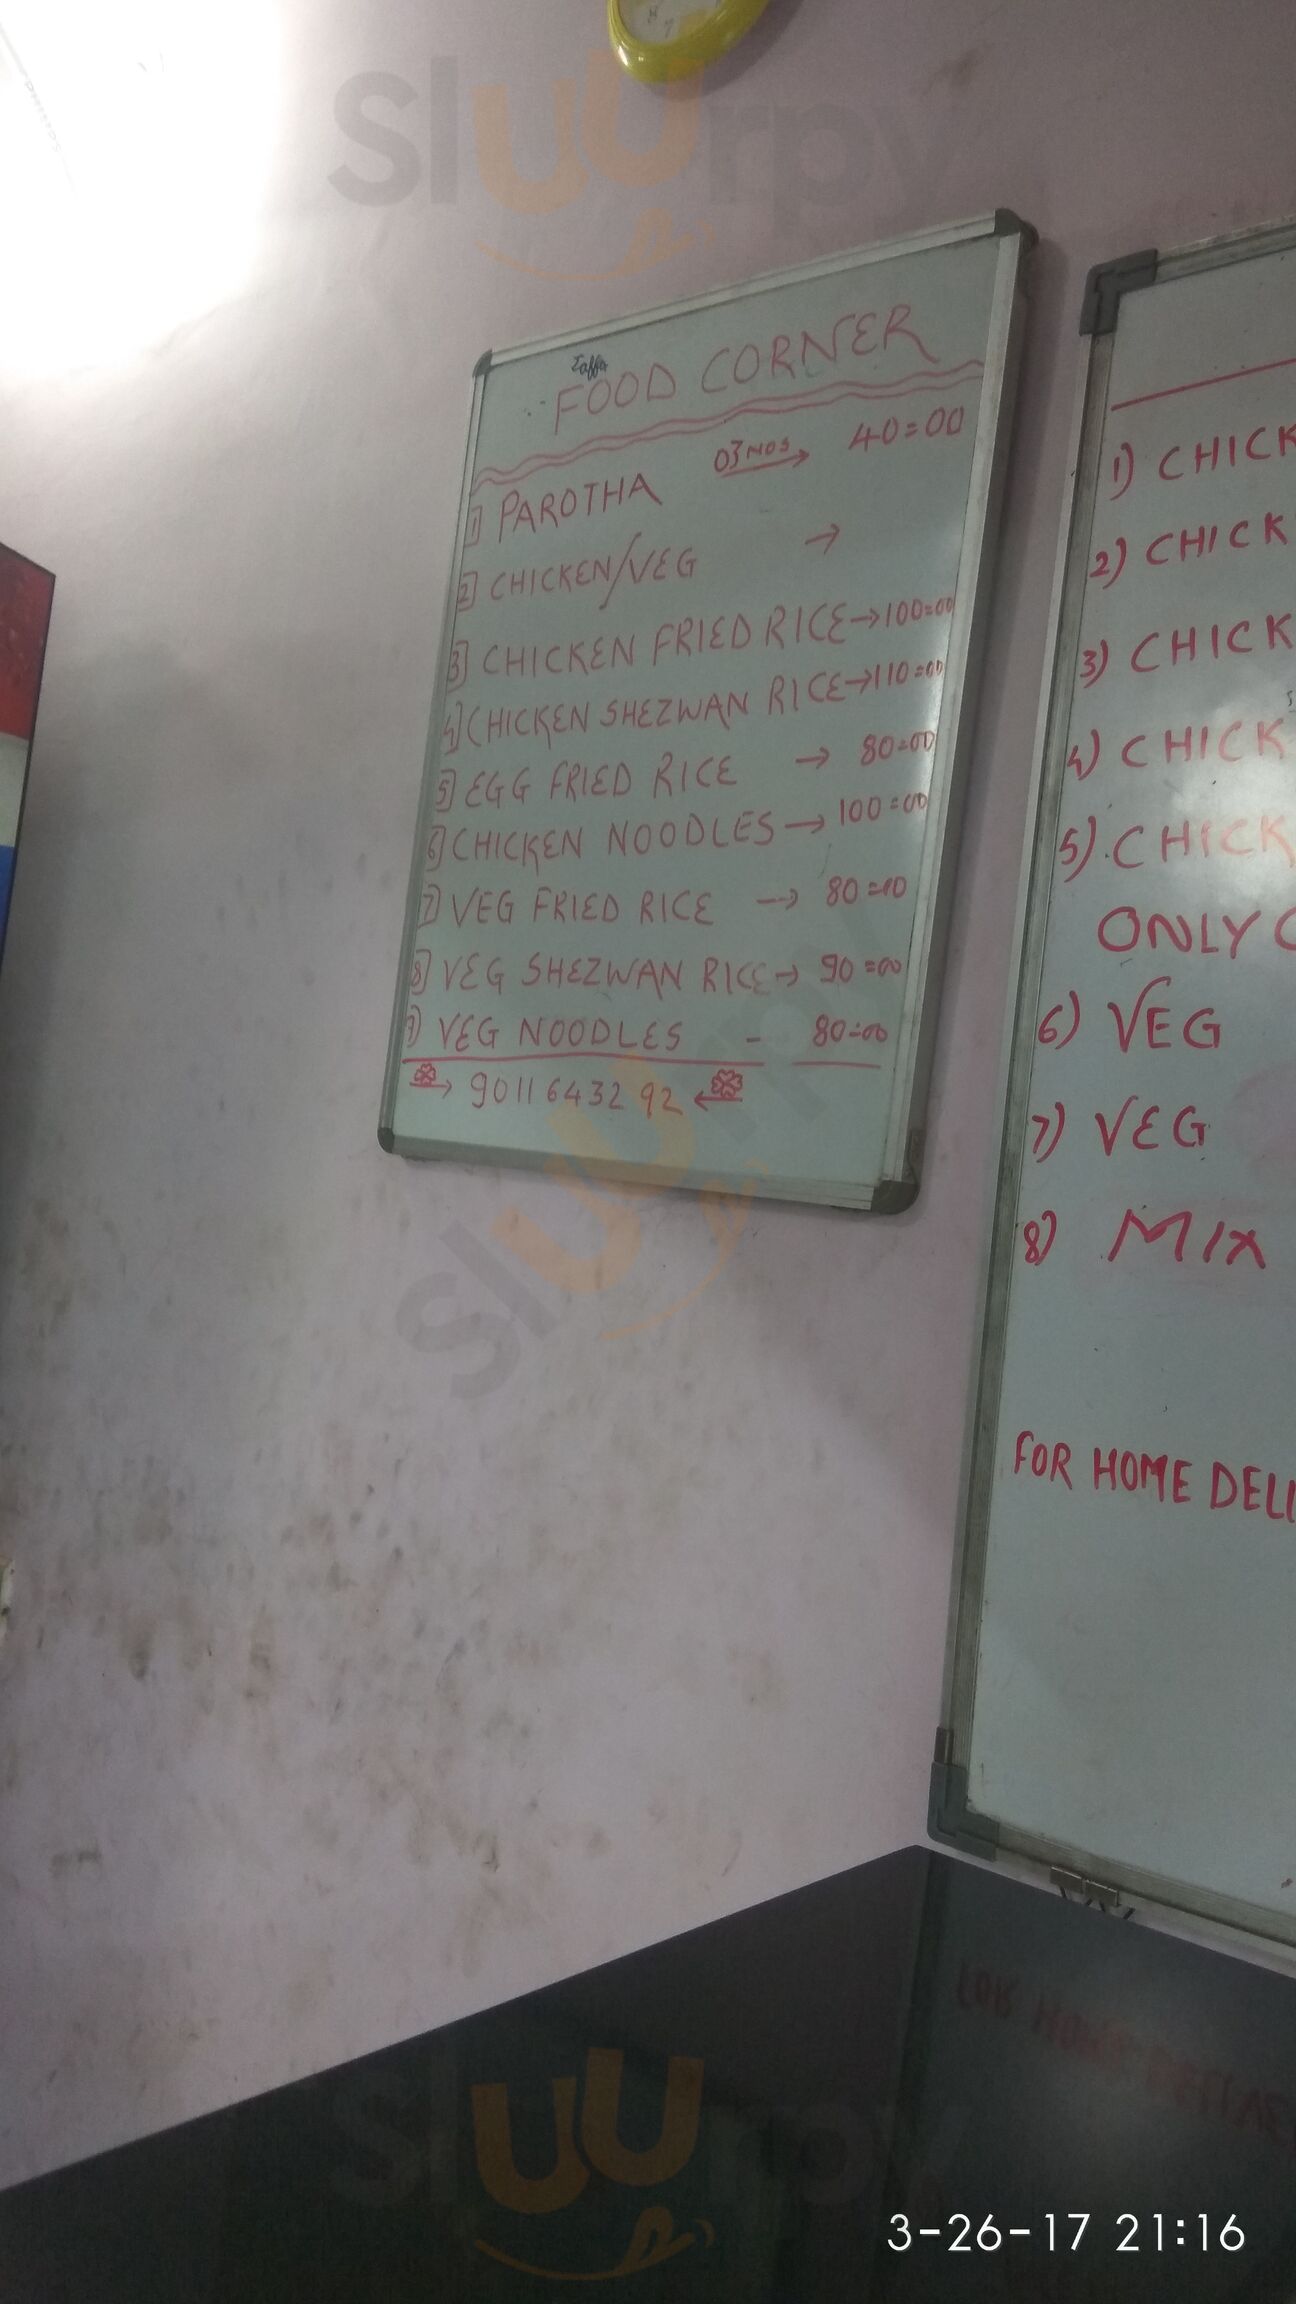 Sluurpy
FOOD CORNER
1] PAROTHA 03 NOS → 40=00
2] CHICKEN/VEG →
3] CHICKEN FRIED RICE → 100=00
4] CHICKEN SHEZWAN RICE → 110=00
5] EGG FRIED RICE → 80=00
6] CHICKEN NOODLES → 100=00
7] VEG FRIED RICE → 80=00
8] VEG SHEZWAN RICE → 90=00
9] VEG NOODLES - 80=00
→ 9011643292 ←
1) CHICK
2) CHICK
3) CHICK
4) CHICK
5) CHICK
ONLY
6) VEG
7) VEG
8) MIX
FOR HOME DELI
Sluurpy
Sluurpy
3-26-17 21:16